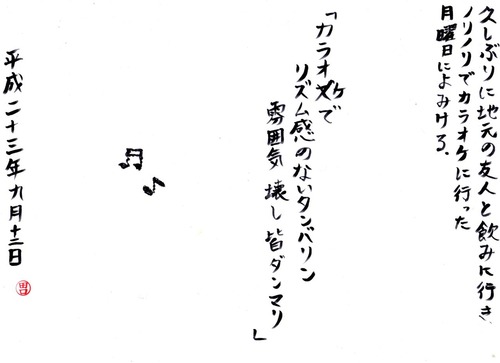 久しぶりに地元の友人と飲みに行き、
ノリノリでカラオケに行った
月曜日によみける、
「カラオケで
リズム感のないタンバリン
雰囲気壊し皆ダンマリ」
平成二十三年九月十三日